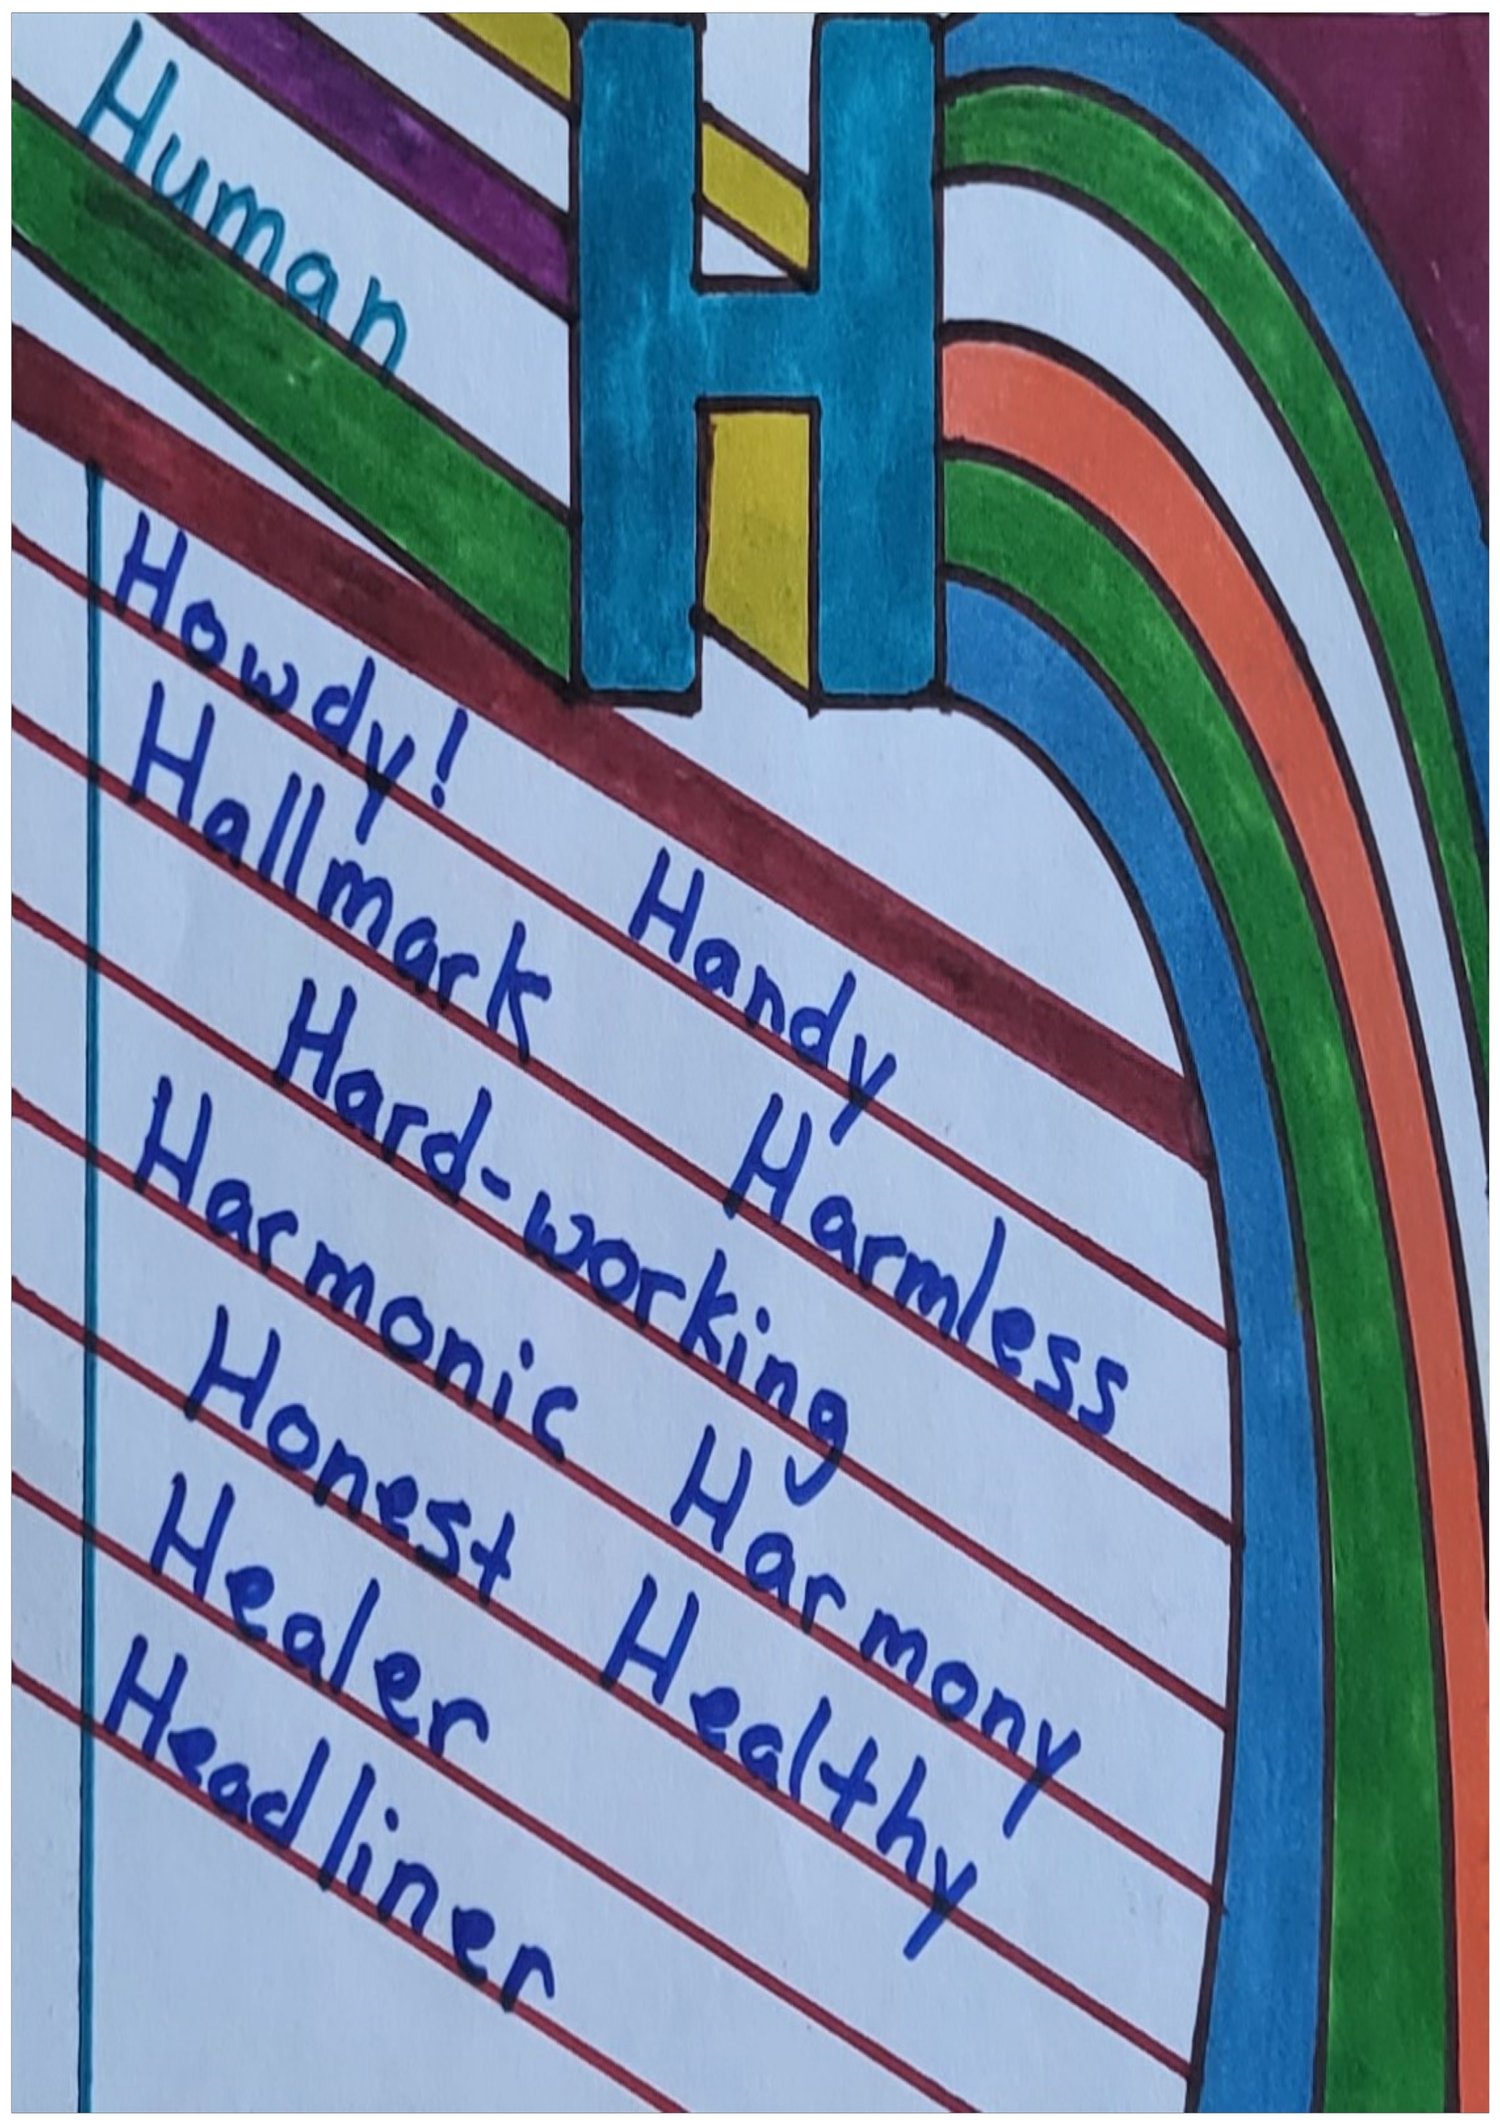 H
Human
Howdy! Handy
Hallmark Harmless
Hard-working
Harmonic Harmony
Honest Healthy
Healer
Headliner